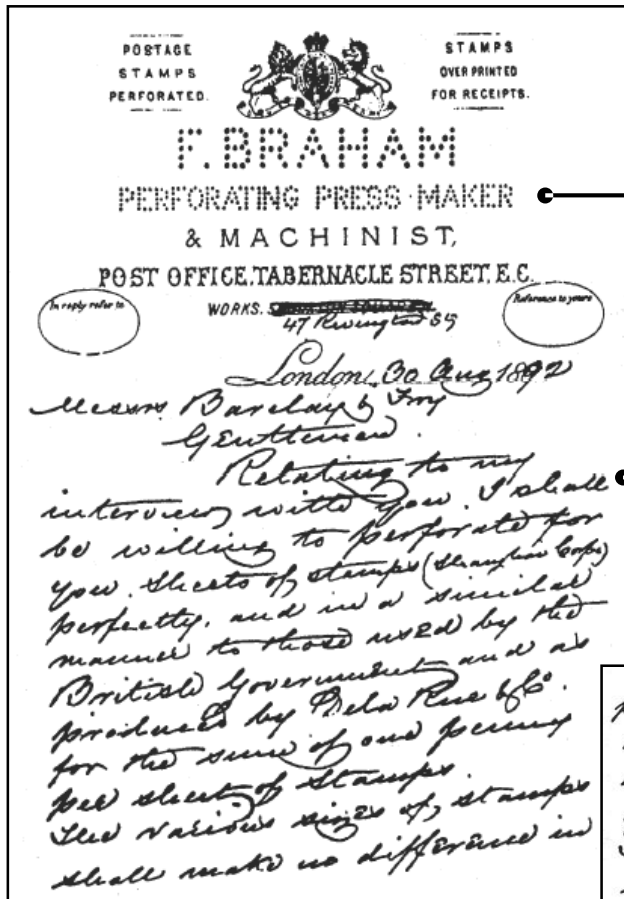 POSTAGE
STAMPS
PERFORATED.
STAMPS
OVER PRINTED
FOR RECEIPTS.
F. BRAHAM
PERFORATING PRESS-MAKER
& MACHINIST,
POST OFFICE, TABERNACLE STREET, E.C.
In reply refer to
WORKS.
47 Rivington St
Reference to yours
London, 30 Aug 1892
Messrs Barclay & Fry
Gentlemen.
Relating to my
interview with you. I shall
be willing to perforate for
you. sheets of stamps (Shanghai Corps)
perfectly. and in a similar
manner to those used by the
British Government and as
produced by De la Rue & Co.
for the sum of one penny
per sheet of Stamps
The various sizes of, stamps
shall make no difference in